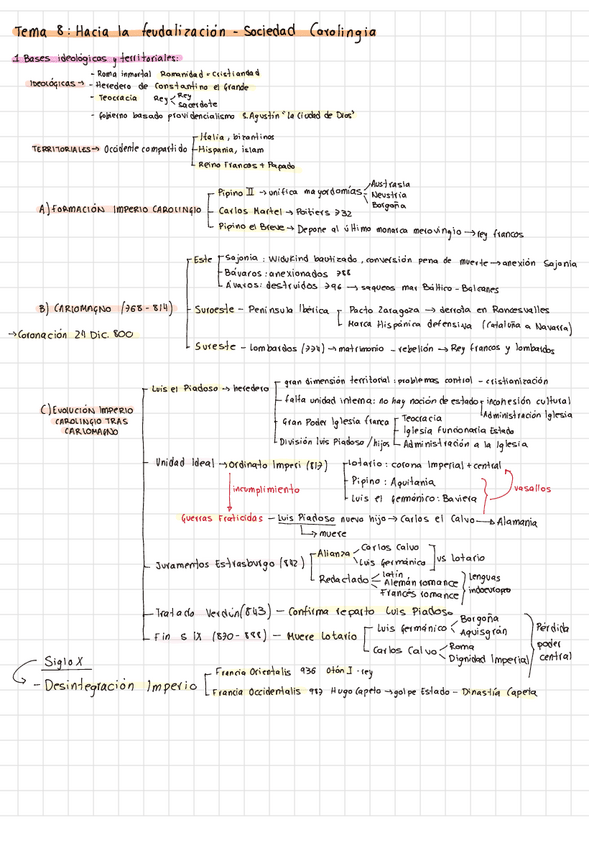 Tema 8: Hacia la feudalización - Sociedad Carolingia
1 Bases ideológicas y territoriales:
IDEOLÓGICAS →
- Roma inmortal Romanidad = Cristiandad
- Heredero de Constantino el Grande
- Teocracia Rey < Rey
Sacerdote
- Gobierno basado providencialismo S. Agustín "La Ciudad de Dios"
TERRITORIALES → Occidente compartido
Italia, bizantinos
Hispania, islam
Reino Francos + Papado
A) FORMACIÓN IMPERIO CAROLINGIO
Pipino II → unifica mayordomías
Austrasia
Neustria
Borgoña
Carlos Martel → Poitiers 732
Pipino el Breve → Depone al último monarca merovingio → rey francos
B) CARLOMAGNO (768 - 814)
→ Coronación 24 Dic. 800
Este
Sajonia: Widukind bautizado, conversión pena de muerte → anexión Sajonia
Bávaros: anexionados 788
Ávaros: destruidos 796 → saqueos mar Báltico - Balcanes
Suroeste - Península Ibérica
Pacto Zaragoza → derrota en Roncesvalles
Marca Hispánica defensiva (Cataluña a Navarra)
Sureste - Lombardos (774) → matrimonio - rebelión → Rey francos y lombardos
C) EVOLUCIÓN IMPERIO
CAROLINGIO TRAS
CARLOMAGNO
Luis el Piadoso → heredero
gran dimensión territorial: problemas control - cristianización
falta unidad interna: no hay noción de estado
incohesión cultural
Administración Iglesia
Gran Poder Iglesia franca
Teocracia
Iglesia funcionaria Estado
Administración a la Iglesia
División Luis Piadoso / hijos
Unidad Ideal → Ordinato Imperi (817)
Lotario: corona Imperial + central
Pipino: Aquitania
Luis el Germánico: Baviera
vasallos
incumplimiento
Guerras Fraticidas - Luis Piadoso nuevo hijo → Carlos el Calvo → Alamania
muere
Juramentos Estrasburgo (842)
Alianza
Carlos Calvo
Luis Germánico
vs Lotario
Redactado
latín
Alemán romance
Francés romance
lenguas
indoeuropeo
Tratado Verdún (843) - Confirma reparto Luis Piadoso
Fin S IX (870 - 888) - Muere Lotario
Luis Germánico
Borgoña
Aquisgrán
Carlos Calvo
Roma
Dignidad Imperial
Pérdida
poder
central
Siglo X
- Desintegración Imperio
Francia Orientalis 936 Otón I - rey
Francia Occidentalis 987 Hugo Capeto → golpe Estado - Dinastía Capeta